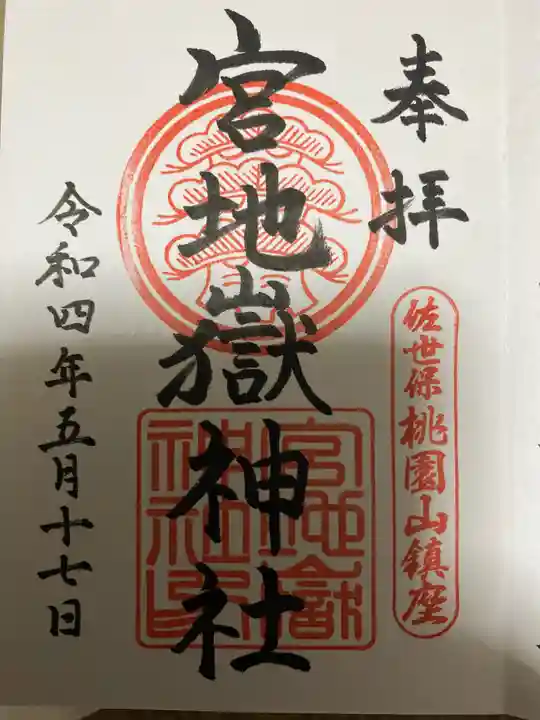 奉拝
佐世保桃園山鎮座
宮地嶽神社
宮地嶽
神社印
令和四年五月十七日